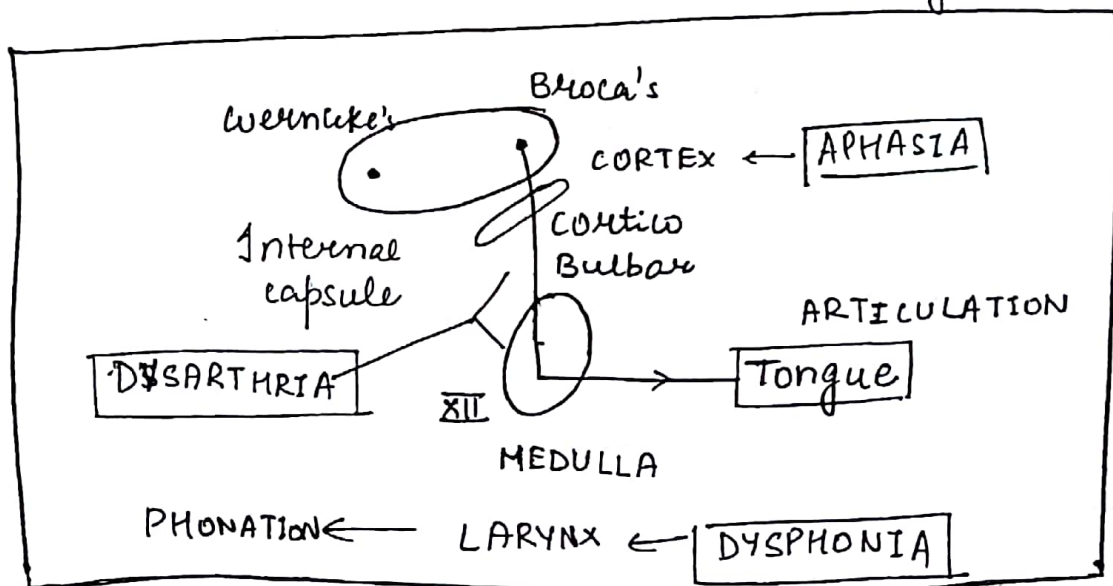 Broca's
Wernicke's
CORTEX ← APHASIA
Internal
capsule
Cortico
Bulbar
ARTICULATION
DYSARTHRIA
Tongue
XII
MEDULLA
PHONATION ← LARYNX ← DYSPHONIA